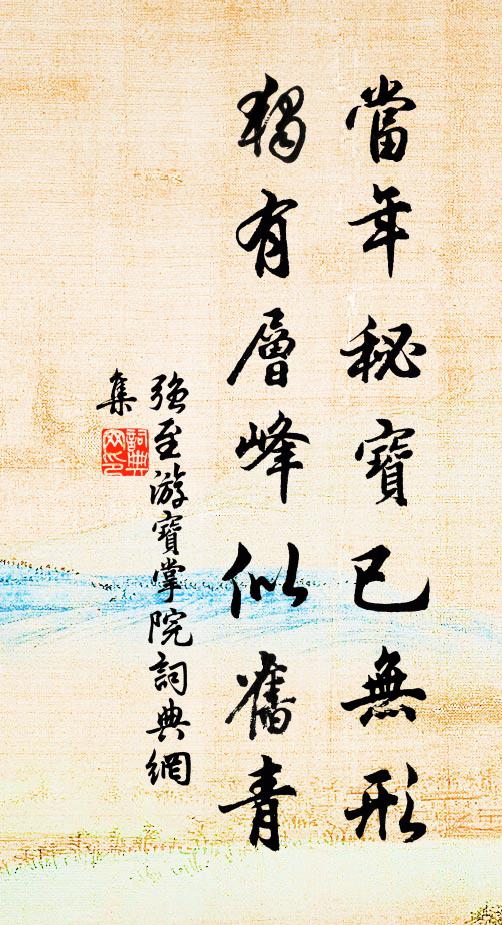 當年秘寶已無形
獨有層峰似舊青
強至游寶掌院詞典網
集
詞典網印